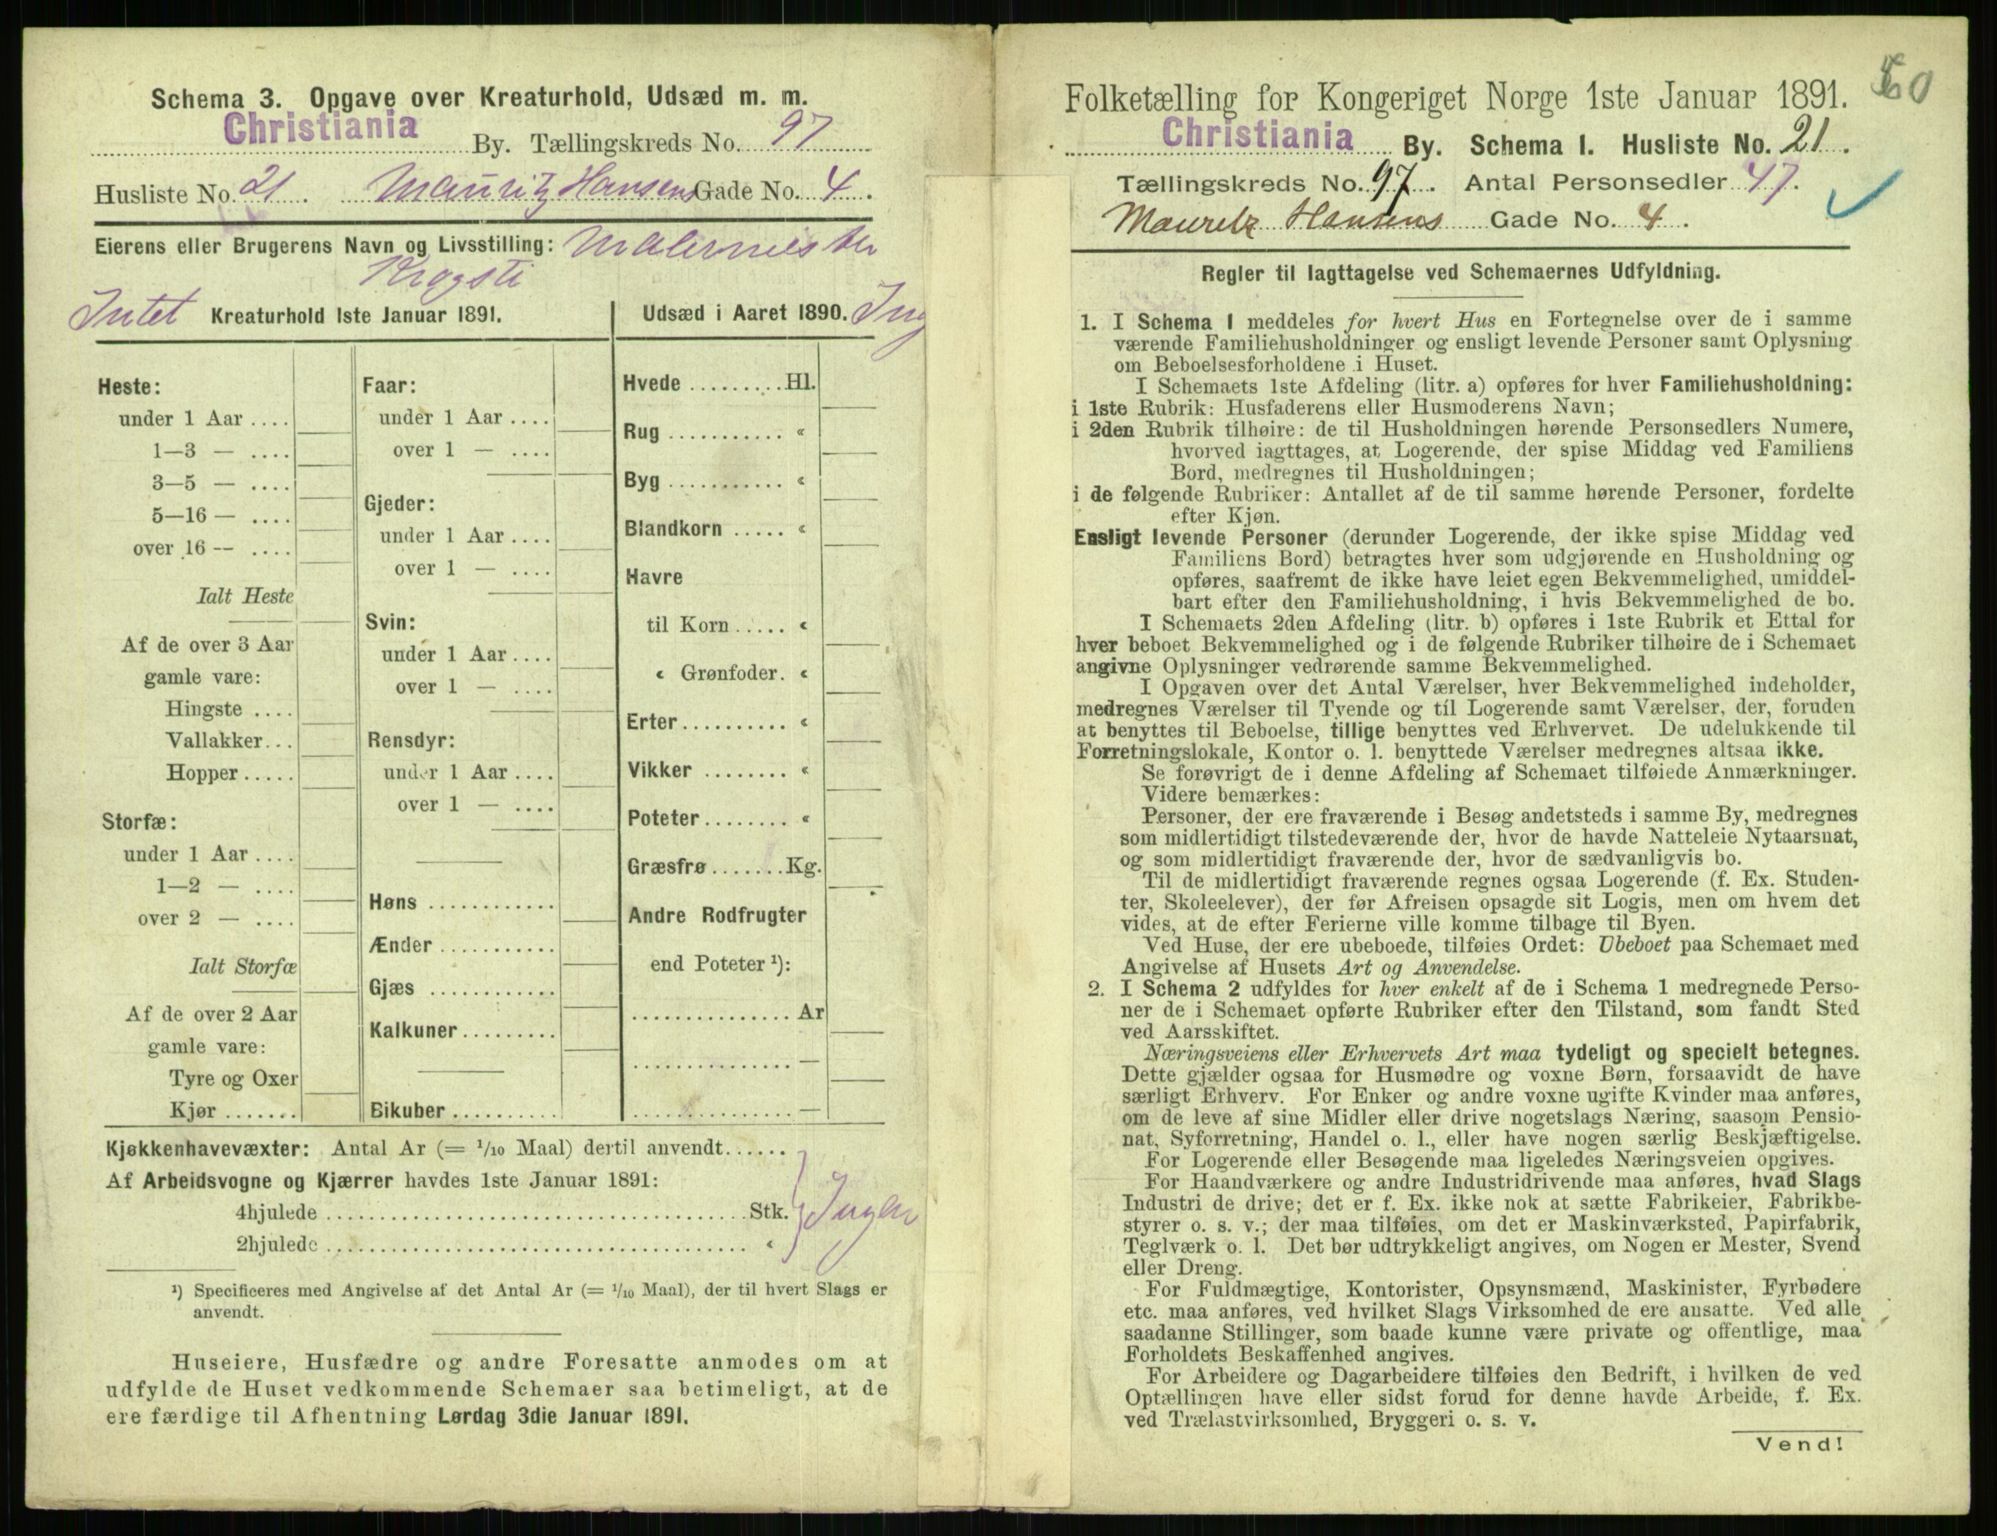 Schema 3. Opgave over Kreaturhold, Udsæd m. m.
Christiania By. Tællingskreds No. 97
Husliste No. 21. Mauritz Hansens Gade No. 4.
Eierens eller Brugerens Navn og Livsstilling: Malermester
Krogsti
Intet Kreaturhold 1ste Januar 1891.
Heste:
under 1 Aar ....
1—3 — ....
3—5 — ....
5—16 — ....
over 16 — ....
Ialt Heste
Af de over 3 Aar
gamle vare:
Hingste ....
Vallakker...
Hopper .....
Storfæ:
under 1 Aar ....
1—2 — ....
over 2 — ....
Ialt Storfæ
Af de over 2 Aar
gamle vare:
Tyre og Oxer
Kjør .......
Faar:
under 1 Aar ....
over 1 — ....
Gjeder:
under 1 Aar ....
over 1 — ....
Svin:
under 1 Aar ....
over 1 — ....
Rensdyr:
under 1 Aar ....
over 1 — ....
Høns ............
Ænder ...........
Gjæs ............
Kalkuner.........
Bikuber ..........
Udsæd i Aaret 1890. Ing
Hvede .........Hl.
Rug ........... «
Byg ........... «
Blandkorn ..... «
Havre
til Korn ..... «
« Grønfoder. «
Erter.......... «
Vikker ........ «
Poteter........ «
Græsfrø .......Kg.
Andre Rodfrugter
end Poteter ¹):
.............. Ar
.............. —
.............. —
Kjøkkenhavevæxter: Antal Ar (= 1/10 Maal) dertil anvendt......
Af Arbeidsvogne og Kjærrer havdes 1ste Januar 1891:
4hjulede ..................................... Stk. } Ingen
2hjulede ..................................... «
¹) Specificeres med Angivelse af det Antal Ar (= 1/10 Maal), der til hvert Slags er
anvendt.
Huseiere, Husfædre og andre Foresatte anmodes om at
udfylde de Huset vedkommende Schemaer saa betimeligt, at de
ere færdige til Afhentning Lørdag 3die Januar 1891.
Folketælling for Kongeriget Norge 1ste Januar 1891.
Christiania By. Schema I. Husliste No. 21.
Tællingskreds No. 97. Antal Personsedler 47.
Mauretz Hansens Gade No. 4.
Regler til Iagttagelse ved Schemaernes Udfyldning.
1. I Schema 1 meddeles for hvert Hus en Fortegnelse over de i samme
værende Familiehusholdninger og ensligt levende Personer samt Oplysning
om Beboelsesforholdene i Huset.
I Schemaets 1ste Afdeling (litr. a) opføres for hver Familiehusholdning:
i 1ste Rubrik: Husfaderens eller Husmoderens Navn;
i 2den Rubrik tilhøire: de til Husholdningen hørende Personsedlers Numere,
hvorved iagttages, at Logerende, der spise Middag ved Familiens
Bord, medregnes til Husholdningen;
i de følgende Rubriker: Antallet af de til samme hørende Personer, fordelte
efter Kjøn.
Ensligt levende Personer (derunder Logerende, der ikke spise Middag ved
Familiens Bord) betragtes hver som udgjørende en Husholdning og
opføres, saafremt de ikke have leiet egen Bekvemmelighed, umiddel-
bart efter den Familiehusholdning, i hvis Bekvemmelighed de bo.
I Schemaets 2den Afdeling (litr. b) opføres i 1ste Rubrik et Ettal for
hver beboet Bekvemmelighed og i de følgende Rubriker tilhøire de i Schemaet
angivne Oplysninger vedrørende samme Bekvemmelighed.
I Opgaven over det Antal Værelser, hver Bekvemmelighed indeholder,
medregnes Værelser til Tyende og til Logerende samt Værelser, der, foruden
at benyttes til Beboelse, tillige benyttes ved Erhvervet. De udelukkende til
Forretningslokale, Kontor o. l. benyttede Værelser medregnes altsaa ikke.
Se forøvrigt de i denne Afdeling af Schemaet tilføiede Anmærkninger.
Videre bemærkes:
Personer, der ere fraværende i Besøg andetsteds i samme By, medregnes
som midlertidigt tilstedeværende der, hvor de havde Natteleie Nytaarsnat,
og som midlertidigt fraværende der, hvor de sædvanligvis bo.
Til de midlertidigt fraværende regnes ogsaa Logerende (f. Ex. Studen-
ter, Skoleelever), der før Afreisen opsagde sit Logis, men om hvem det
vides, at de efter Ferierne ville komme tilbage til Byen.
Ved Huse, der ere ubeboede, tilføies Ordet: Ubeboet paa Schemaet med
Angivelse af Husets Art og Anvendelse.
2. I Schema 2 udfyldes for hver enkelt af de i Schema 1 medregnede Perso-
ner de i Schemaet opførte Rubriker efter den Tilstand, som fandt Sted
ved Aarsskiftet.
Næringsveiens eller Erhvervets Art maa tydeligt og specielt betegnes.
Dette gjælder ogsaa for Husmødre og voxne Børn, forsaavidt de have
særligt Erhverv. For Enker og andre voxne ugifte Kvinder maa anføres,
om de leve af sine Midler eller drive nogetslags Næring, saasom Pensio-
nat, Syforretning, Handel o. l., eller have nogen særlig Beskjæftigelse.
For Logerende eller Besøgende maa ligeledes Næringsveien opgives.
For Haandværkere og andre Industridrivende maa anføres, hvad Slags
Industri de drive; det er f. Ex. ikke nok at sætte Fabrikeier, Fabrikbe-
styrer o. s. v.; der maa tilføies, om det er Maskinværksted, Papirfabrik,
Teglværk o. l. Det bør udtrykkeligt angives, om Nogen er Mester, Svend
eller Dreng.
For Fuldmægtige, Kontorister, Opsynsmænd, Maskinister, Fyrbødere
etc. maa anføres, ved hvilket Slags Virksomhed de ere ansatte. Ved alle
saadanne Stillinger, som baade kunne være private og offentlige, maa
Forholdets Beskaffenhed angives.
For Arbeidere og Dagarbeidere tilføies den Bedrift, i hvilken de ved
Optællingen have eller sidst forud for denne havde Arbeide, f. Ex.
ved Trælastvirksomhed, Bryggeri o. s. v.
Vend!